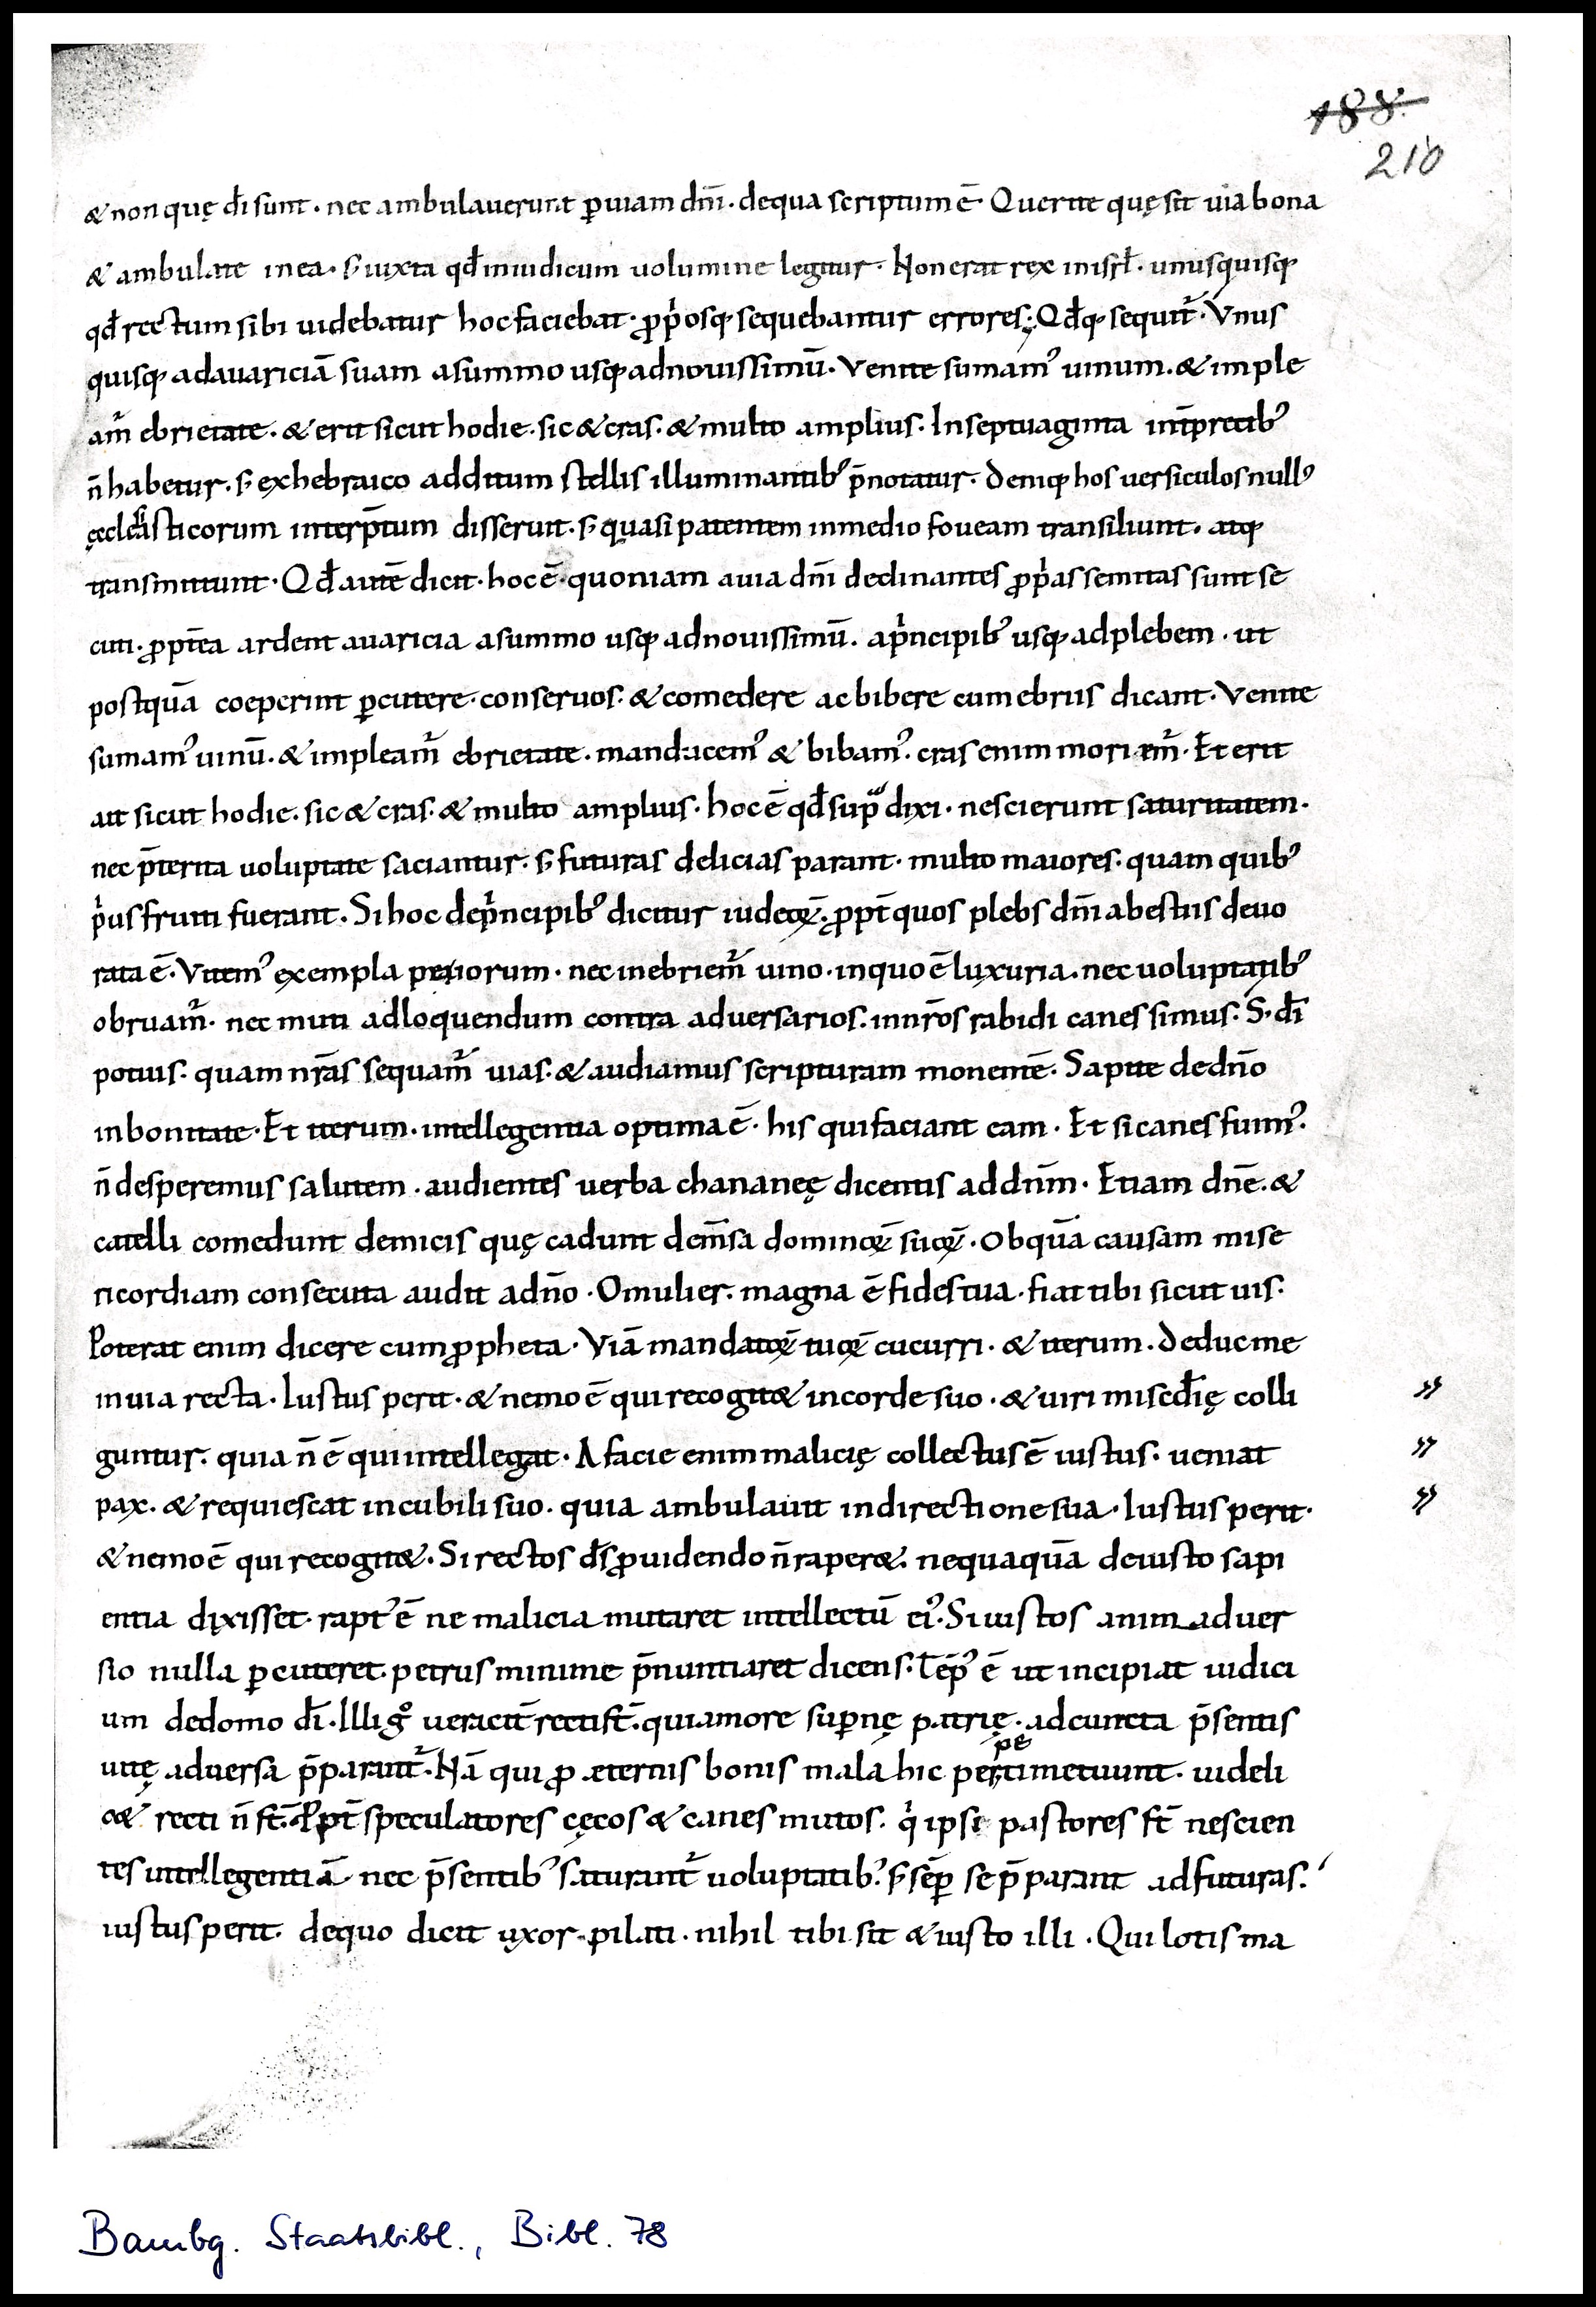 188.
210
& non quę dī sunt · nec ambulauerunt ꝑ uiam dn̄i · de qua scriptum ē Querite quę sit uia bona
& ambulate in ea · s; iuxta qđ in iudicum uolumine legitur · Non erat rex in isrł · unusquisq;
qđ rectum sibi uidebatur hoc faciebat · ꝓpͥosq; sequebantur errores; Qđq; sequit᷑ · Vnus
quisq; ad auariciā suam a summo usq; ad nouissimū · Venite sumamꝰ uinum · & imple
am᷑ ebrietate · & erit sicut hodie · sic & cras · & multo amplius · In septuaginta int̄p̄tib;
n̄ habetur · s; ex hebraico additum stellis illuminantib; p̄notatur · Deniq; hos uersiculos nullꝰ
ęcclesiasticorum interp̄tum disseruit · s; quasi patentem in medio foueam transiliunt · atq;
transmittunt · Qđ autē dicit · hoc ē · quoniam a uia dn̄i declinantes ꝓpͥas semitas sunt se
cuti · ꝓpt̄ea ardent auaricia a summo usq; ad nouissimū · a pͥncipib; usq; ad plebem · ut
postquā coeperint ꝑcutere · conseruos · & comedere ac bibere cum ebriis dicant · Venite
sumamꝰ uinū · & impleam᷑ ebrietate · manducemꝰ & bibamꝰ · cras enim moriem᷑ · Et erit
ait sicut hodie · sic & cras · & multo amplius · hoc ē qđ supͣ dixi · nescierunt saturitatem ·
nec p̄terita uoluptate saciantur · s; futuras delicias parant · multo maiores · quam quib;
pͥus fruiti fuerant · Si hoc de pͥncipib; dicitur iudeoꝝ · ꝓpt̄ quos plebs dn̄i a bestiis deuo
rata ē · Vitemꝰ exempla peiorum · nec inebriem᷑ uino · in quo ē luxuria · nec uoluptatib;
obruam᷑ · nec muti ad loquendum contra aduersarios · in nr̄os rabidi canes simus · S; dī
potius · quam nr̄as sequam᷑ uias · & audiamus scripturam monentē · Sapite de dn̄o
in bonitate · Et iterum · intellegentia optima ē · his qui faciant eam · Et si canes fuimꝰ ·
n̄ desperemus salutem · audientes uerba chananeę dicentis ad dn̄m · Etiam dn̄e · &
catelli comedunt de micis quę cadunt de m̄sa dominoꝝ suoꝝ · Ob quā causam mise
ricordiam consecuta audit a dn̄o · O mulier · magna ē fides tua · fiat tibi sicut uis ·
Poterat enim dicere cum ꝓpheta · Viā mandatoꝝ tuoꝝ cucurri · & iterum · Deduc me
in uia recta · Iustus perit · & nemo ē qui recogit& in corde suo · & uiri miscđię colli
guntur · quia n̄ ē qui intellegat · A facie enim malicię collectus ē iustus · ueniat
pax · & requiescat in cubili suo · quia ambulauit in directione sua · Iustus perit ·
& nemo ē qui recogit& · Si rectos d̄s ꝓuidendo n̄ raper& · nequaquā de iusto sapi
entia dixisset · raptꝰ ē ne malicia mutaret intellectū eiꝰ · Si iustos animaduer
sio nulla ꝑcuteret · petrus minime p̄nuntiaret dicens · Tēpꝰ ē ut incipiat iudici
um de domo dī · Illi gͦ ueracit̄ recti st̄ · qui amore suꝑnę patrię · ad cuncta p̄sentis
uitę aduersa p̄parant᷑ · Nā qui ꝓ eternis bonis mala hic pertimetuunt · uideli
c& recti n̄ st̄ · Ꝓpt̄ speculatores cęcos & canes mutos · qͥ ipsi pastores st̄ nescien
tes intellegentiā nec p̄sentib; saturant᷑ uoluptatib; s; sēꝑ se p̄parant ad futuras ·
iustus perit · de quo dicit uxor pilati · nihil tibi sit & iusto illi · Qui lotis ma
Bambg. Staatsbibl., Bibl. 78